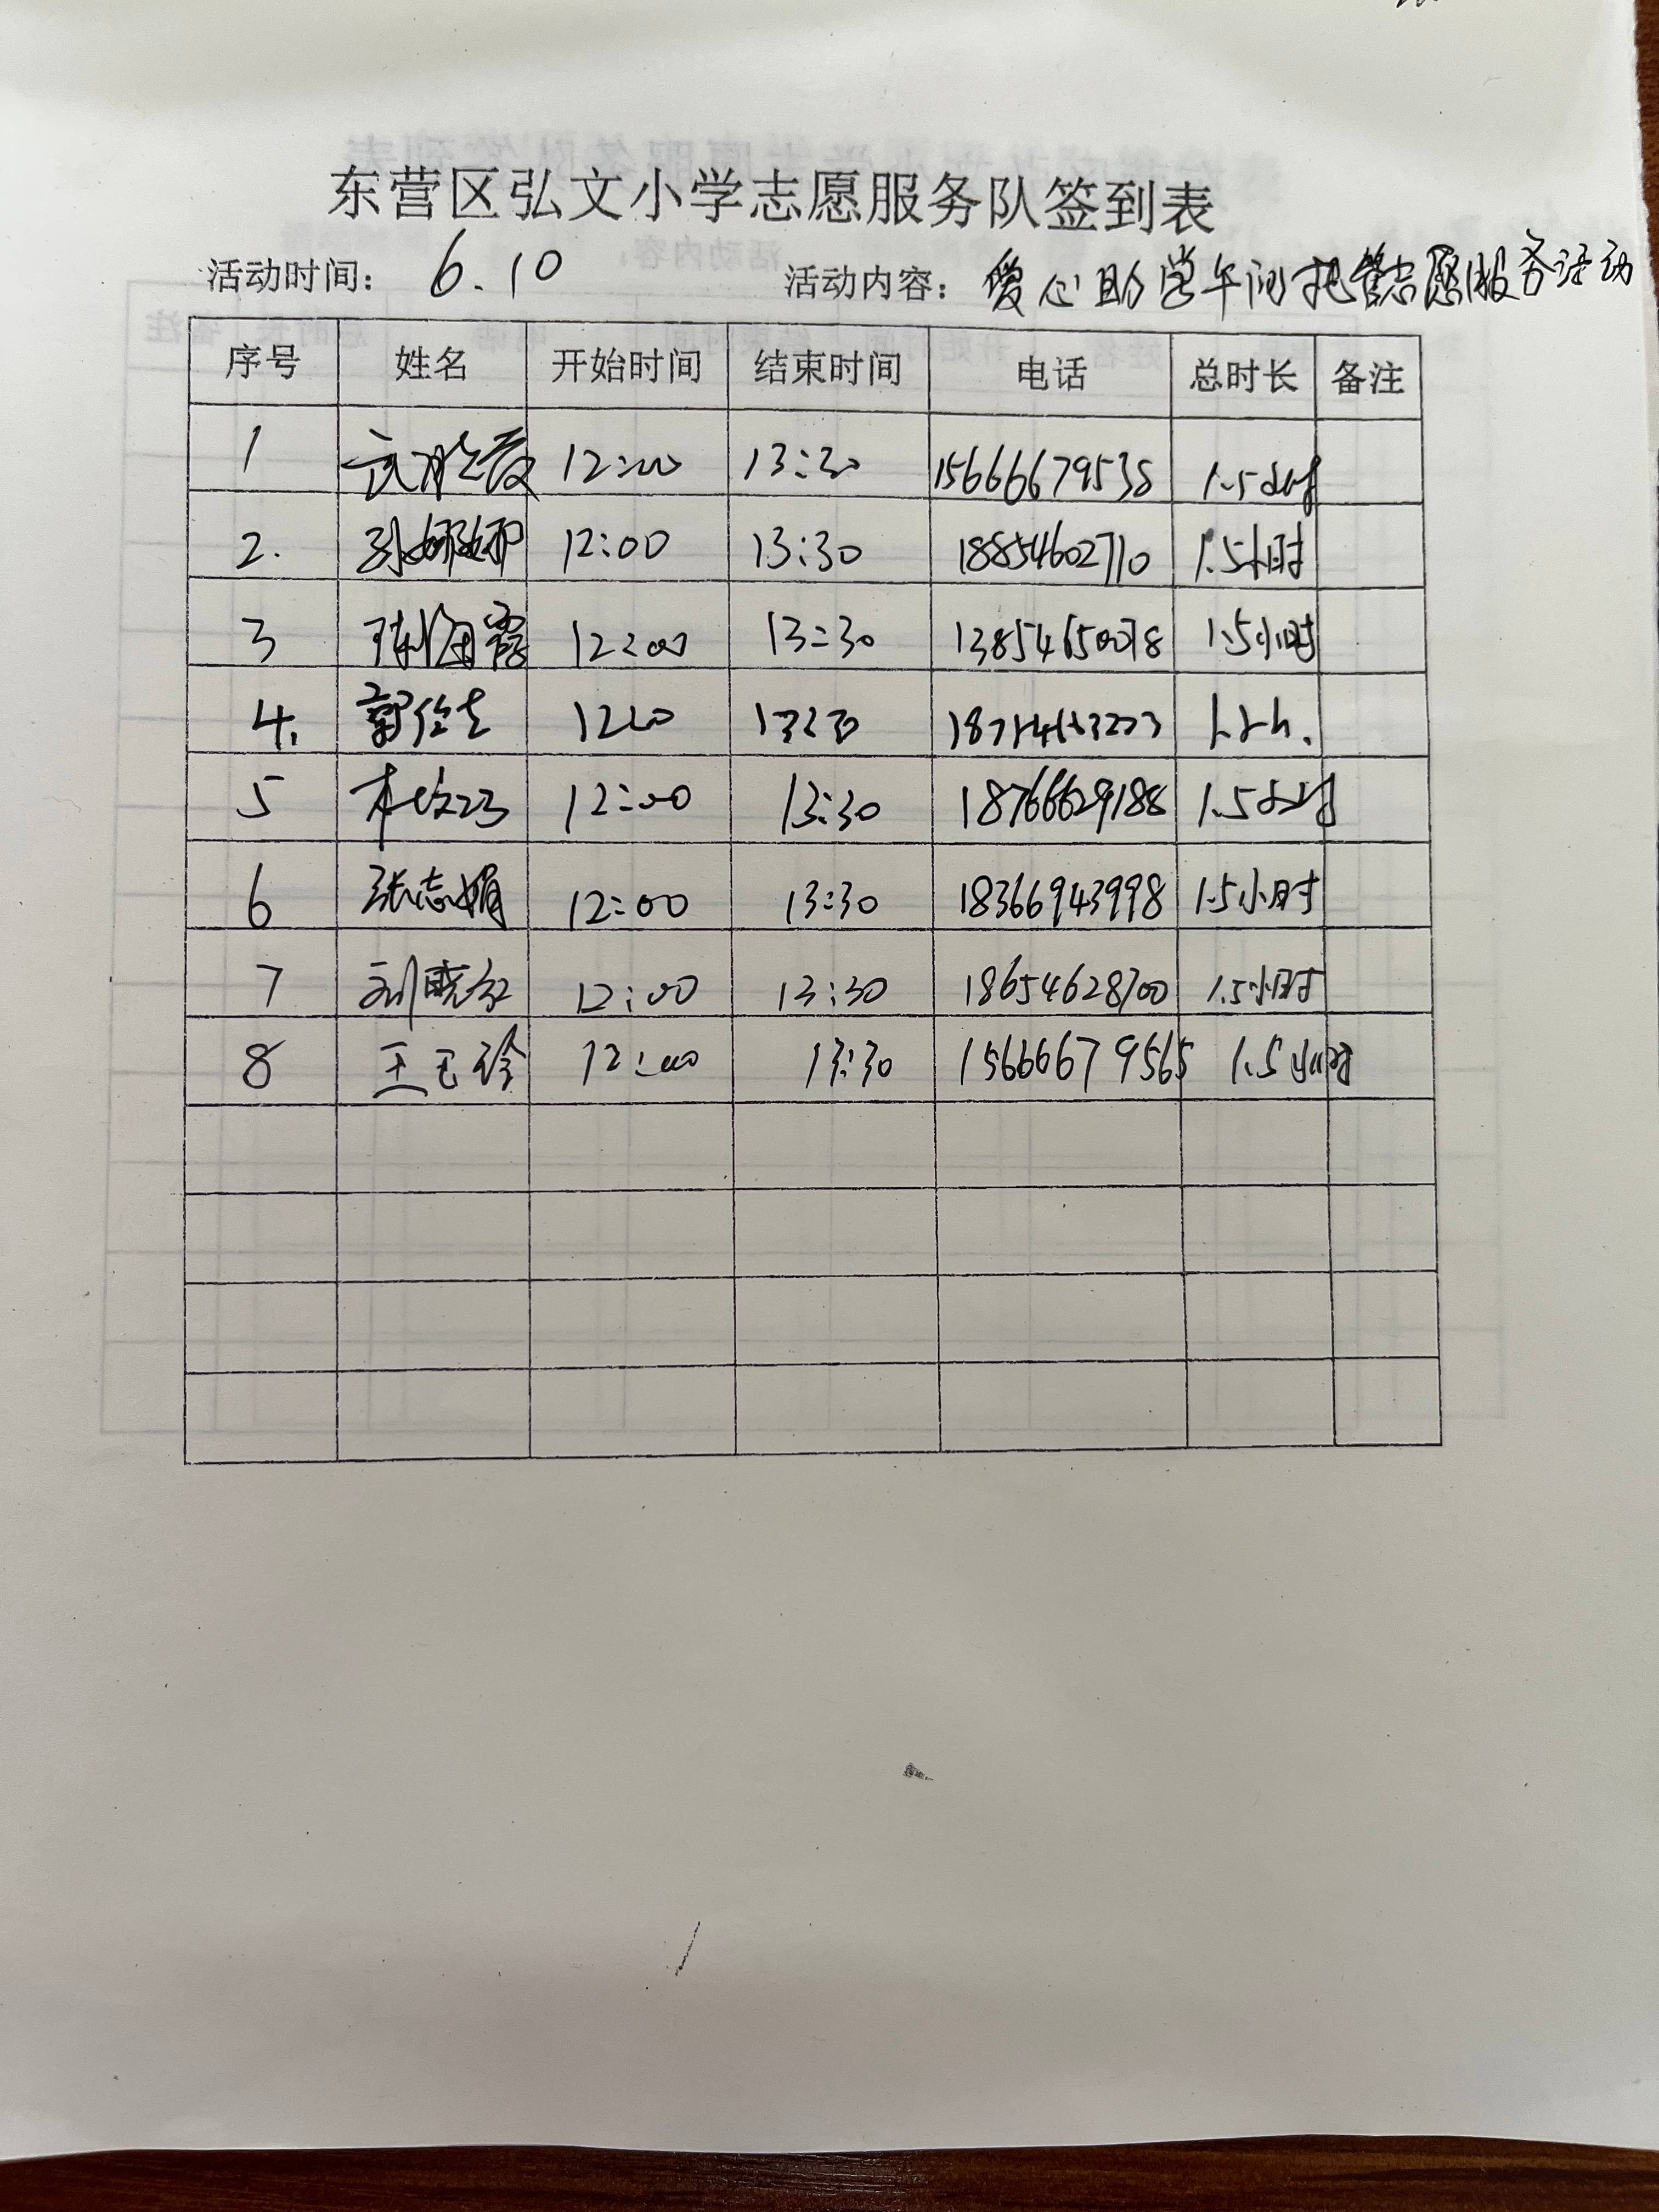 东营区弘文小学志愿服务队签到表
活动时间： 6.10 活动内容： 爱心助学午间托管志愿服务活动
序号 姓名 开始时间 结束时间 电话 总时长 备注
1 12:00 13:30 15666679538 1.5小时
2. 孙娜娜 12:00 13:30 18854602710 1.5小时
3 陈海霞 12:00 13:30 13854650078 1.5小时
4. 13:30 1.5h.
5 12:00 13:30 18766629188 1.5小时
6 张志娟 12:00 13:30 18366943998 1.5小时
7 刘晓红 12:00 13:30 18654628700 1.5小时
8 王玉玲 12:00 13:30 15666679565 1.5小时